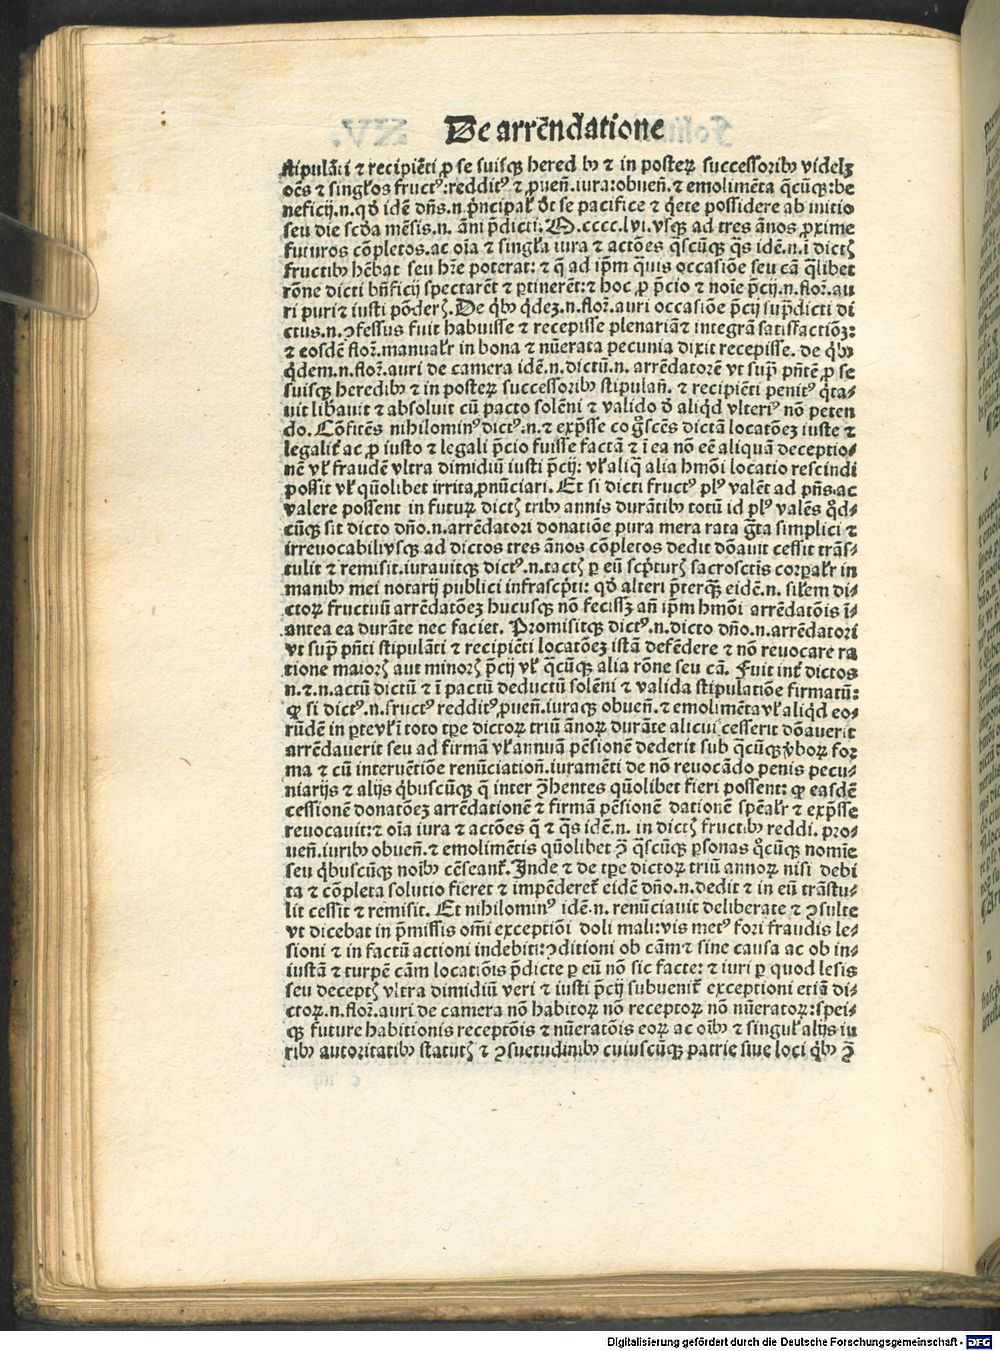 De arrēndatione
stipulāti ⁊ recipiēti ꝓ se suisqꝫ hered bꝰ ⁊ in posteꝝ successoribꝰ videlꝫ
oēs ⁊ singl'os fructꝰ:redditꝰ ⁊ ꝓuen̄.iura:obuen̄.⁊ emolimēta q̄cūqꝫ:be
neficij.n.qd' idē dn̄s.n.pͥncipal' vt se pacifice ⁊ qͥete possidere ab initio
seu die scd'a mēsis.n. āni p̄dicti. M.cccc.lvi.vsqꝫ ad tres ānos ꝓxime
futuros cōpletos.ac oīa ⁊ singl'a iura ⁊ actōes q̄scūqꝫ q̄s idē.n.ī dictꝭ
fructibꝰ hēbat seu hr̄e poterat: ⁊ q̄ ad ip̄m q̄uis occasiōe seu cā q̄libet
rōne dicti bn̄ficij spectarēt ⁊ ꝑtinerēt:⁊ hoc ꝓ p̄cio ⁊ noīe p̄cij.n.flor̄.au
ri puri ⁊ iusti pōderꝭ. De qͥbꝰ qͥdeꝫ.n.flor̄.auri occasiōe p̄cij sup̄dicti di
ctus.n.ꝯfessus fuit habuisse ⁊ recepisse plenariā ⁊ integrā satisfactiōꝫ:
⁊ eosdē flor̄.manualr̄ in bona ⁊ nūerata pecunia dixit recepisse. de qͥbꝰ
qͥdem.n.flor̄.auri de camera idē.n.dictū.n. arrēdatorē vt supͣ pn̄tē ꝓ se
suisqꝫ heredibꝰ ⁊ in posteꝝ successoribꝰ stipulan̄. ⁊ recipiēti penitꝰ qͥta⸗
uit lib̄auit ⁊ absoluit cū pacto solēni ⁊ valido d' aliqͥd vlteriꝰ nō peten
do. Cōfitēs nihilominꝰ dictꝰ.n.⁊ exp̄sse cogͦscēs dictā locatōeꝫ iuste ⁊
legalit' ac ꝓ iusto ⁊ legali p̄cio fuisse factā ⁊ ī ea nō eē aliquā deceptio⸗
nē vl' fraudē vltra dimidiū iusti p̄cij: vl' aliqͣ alia hmōi locatio rescindi
possit vl' qūolibet irrita ꝓnūciari. Et si dicti fructꝰ plꝰ valēt ad pn̄s.ac
valere possent in futuꝝ dictꝭ tribꝰ annis durātibꝰ totū id plꝰ valēs qͦd⸗
cūqꝫ sit dicto dn̄o.n.arrēdatori donatiōe pura mera rata ḡta simplici ⁊
irreuocabili vsqꝫ ad dictos tres ānos cōpletos dedit dōauit cessit trās⸗
tulit ⁊ remisit.iurauitqꝫ dictꝰ.n.tactꝭ ꝑ eū scpͥturꝭ sacrosctīs corꝑalr̄ in
manibꝰ mei notarij publici infrascpͥti: qd' alteri p̄terqꝫ eidē.n. sil'em di⸗
ctoꝝ fructuū arrēdatōeꝫ hucusqꝫ nō fecissꝫ an̄ ip̄m hmōi arrēdatōis ī⸗
antea ea durāte nec faciet. Promisitqꝫ dictꝰ.n.dicto dn̄o.n.arrēdatori
vt supͣ pn̄ti stipulāti ⁊ recipiēti locatōeꝫ istā defēdere ⁊ nō reuocare ra
tione maiorꝭ aut minorꝭ p̄cij vl' q̄cūqꝫ alia rōne seu cā. Fuit int' dictos
n.⁊.n.actū dictū ⁊ ī pactū deductū solēni ⁊ valida stipulatiōe firmatū:
ꝙ si dictꝰ.n.fructꝰ redditꝰ ꝓuen̄.iuraqꝫ obuen̄.⁊ emolimēta vl' aliqͥd eo⸗
rūdē in ꝑte vl' ī toto tp̄e dictoꝝ triū ānoꝝ durāte alicui cesserit dōauerit
arrēdauerit seu ad firmā vl' annuā pēsionē dederit sub q̄cūqꝫ v'boꝝ for
ma ⁊ cū interuētiōe renūciation̄.iuramēti de nō reuocādo penis pecu⸗
niarijs ⁊ alijs qͥbuscūqꝫ q̄ inter ꝯhentes qūolibet fieri possent: ꝙ easdē
cessionē donatōeꝫ arrēdationē ⁊ firmā pēsionē dationē spēalr̄ ⁊ exp̄sse
reuocauit:⁊ oīa iura ⁊ actōes q̄ ⁊ q̄s idē.n. in dictꝭ fructibꝰ reddi. pro⸗
uen̄.iuribꝰ obuen̄.⁊ emolimētis qūolibet ꝯͣ q̄scūqꝫ ꝑsonas qͦcūqꝫ nomīe
seu qͥbuscūqꝫ noībꝰ cēseant'. Inde ⁊ de tp̄e dictoꝝ triū annoꝝ nisi debi
ta ⁊ cōpleta solutio fieret ⁊ impēderet' eidē dn̄o.n.dedit ⁊ in eū trāstu⸗
lit cessit ⁊ remisit. Et nihilominꝰ idē.n. renūciauit deliberate ⁊ ꝯsulte
vt dicebat in p̄missis om̄i exceptiōi doli mali:vis metꝰ fori fraudis le⸗
sioni ⁊ in factū actioni indebiti:ꝯditioni ob cām ⁊ sine causa ac ob in⸗
iustā ⁊ turpē cām locatiōis p̄dicte ꝑ eū nō sic facte: ⁊ iuri ꝑ quod lesis
seu deceptꝭ vltra dimidiū veri ⁊ iusti p̄cij subuenit' exceptioni etiā di⸗
ctoꝝ.n.flor̄.auri de camera nō habitoꝝ nō receptoꝝ nō nūeratoꝝ:spei⸗
qꝫ future habitionis receptōis ⁊ nūeratōis eoꝝ ac oībꝰ ⁊ singul' alijs iu
ribꝰ autoritatibꝰ statutꝭ ⁊ ꝯsuetudinibꝰ cuiuscūqꝫ patrie siue loci qͥbꝰ ꝯͣ
Digitalisierung gefördert durch die Deutsche Forschungsgemeinschaft - DFG